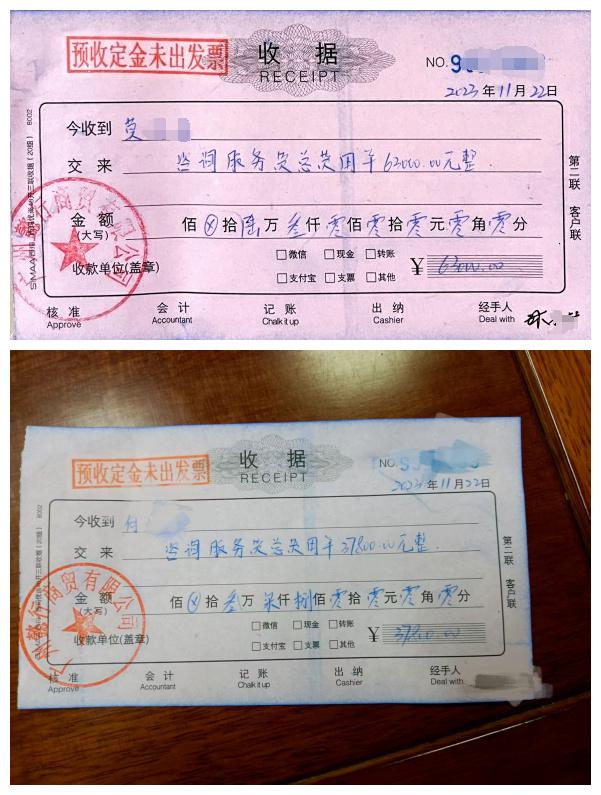 预收定金未出发票
收 据
RECEIPT
NO. 9
2023 年 11 月 22 日
今收到 莫
交 来 咨询服务费总费用¥63000.00元整.
金 额 佰 ⊗ 拾 陆 万 叁 仟 零 佰 零 拾 零 元 零 角 零 分
(大写)
□微信 □现金 □转账
□支付宝 □支票 □其他
收款单位(盖章)
¥ 63000.00
核 准 会 计 记 账 出 纳 经手人
Approve Accountant Chalk it up Cashier Deal with
第二联 客户联
商贸有限公司
预收定金未出发票
收 据
RECEIPT
NO. 9
2023 年 11 月 22 日
今收到 何
交 来 咨询服务费总费用¥37800.00元整.
金 额 佰 ⊗ 拾 叁 万 柒 仟 捌 佰 零 拾 零 元 零 角 零 分
(大写)
□微信 □现金 □转账
□支付宝 □支票 □其他
收款单位(盖章)
¥ 37800.00
核 准 会 计 记 账 出 纳 经手人
Approve Accountant Chalk it up Cashier Deal with
第二联 客户联
商贸有限公司